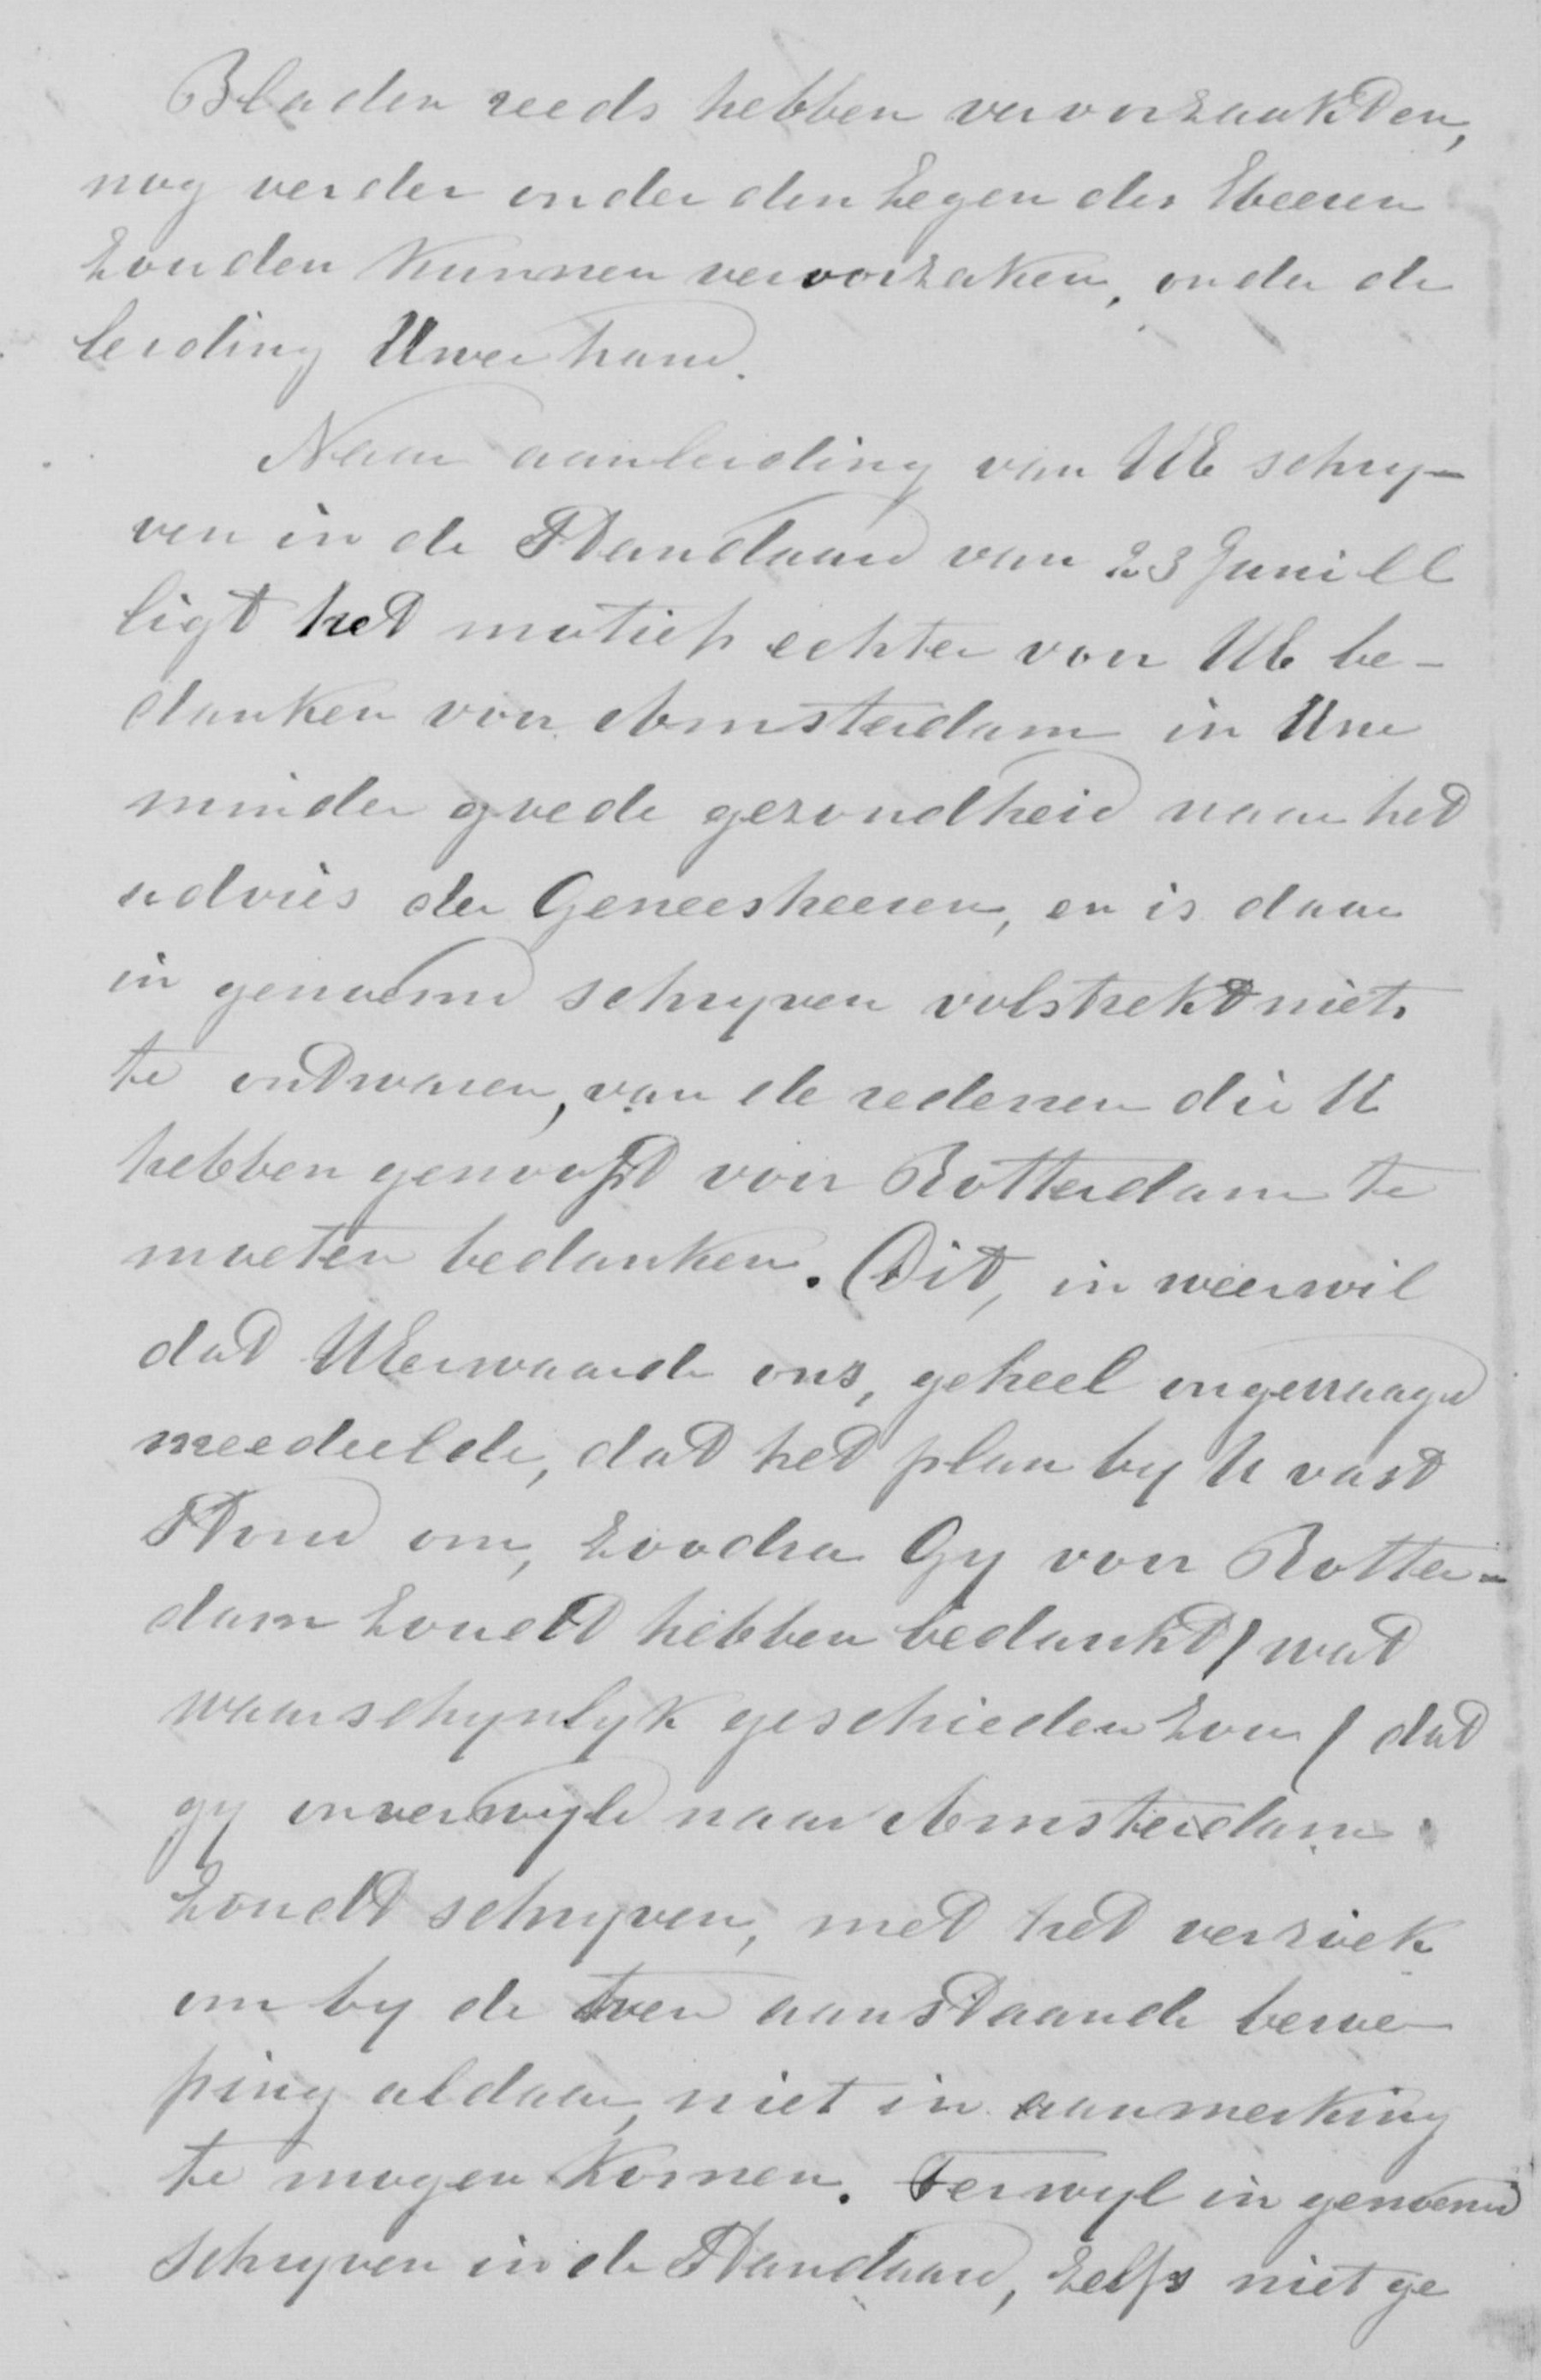 Bladen reeds hebben veroorzaakten,
nog verder onder den Zegen des Heeren
zouden kunnen veroorzaken, onder de
leiding Uwer hand.
Naar aanleiding van UE schry-
ven in de Standaard van 23 Juni ll
ligt het motief echter voor UE be-
danken voor Amsterdam in Uw
minder goede gezondheid naar het
advies der Geneesheeren, en is daar
in genoemd schryven volstrekt niets
te ontwaren, van de redenen die U
hebben genoopt voor Rotterdam te
moeten bedanken. (Dit, in weerwil
dat UEerwaarde ons, geheel ongevraagd
meedeelde, dat het plan by U vast
stond om, zoodra Gy voor Rotter-
dam zoudt hebben bedankt / wat
waarschynlyk geschieden zou / dat
gy onverwyld naar Amsterdam
zoudt schryven, met het verzoek
om by de toen aanstaande beroe
ping aldaar, niet in aanmerking
te mogen komen. Terwyl in genoemd
schryven in de Standaard, zelfs niet ge